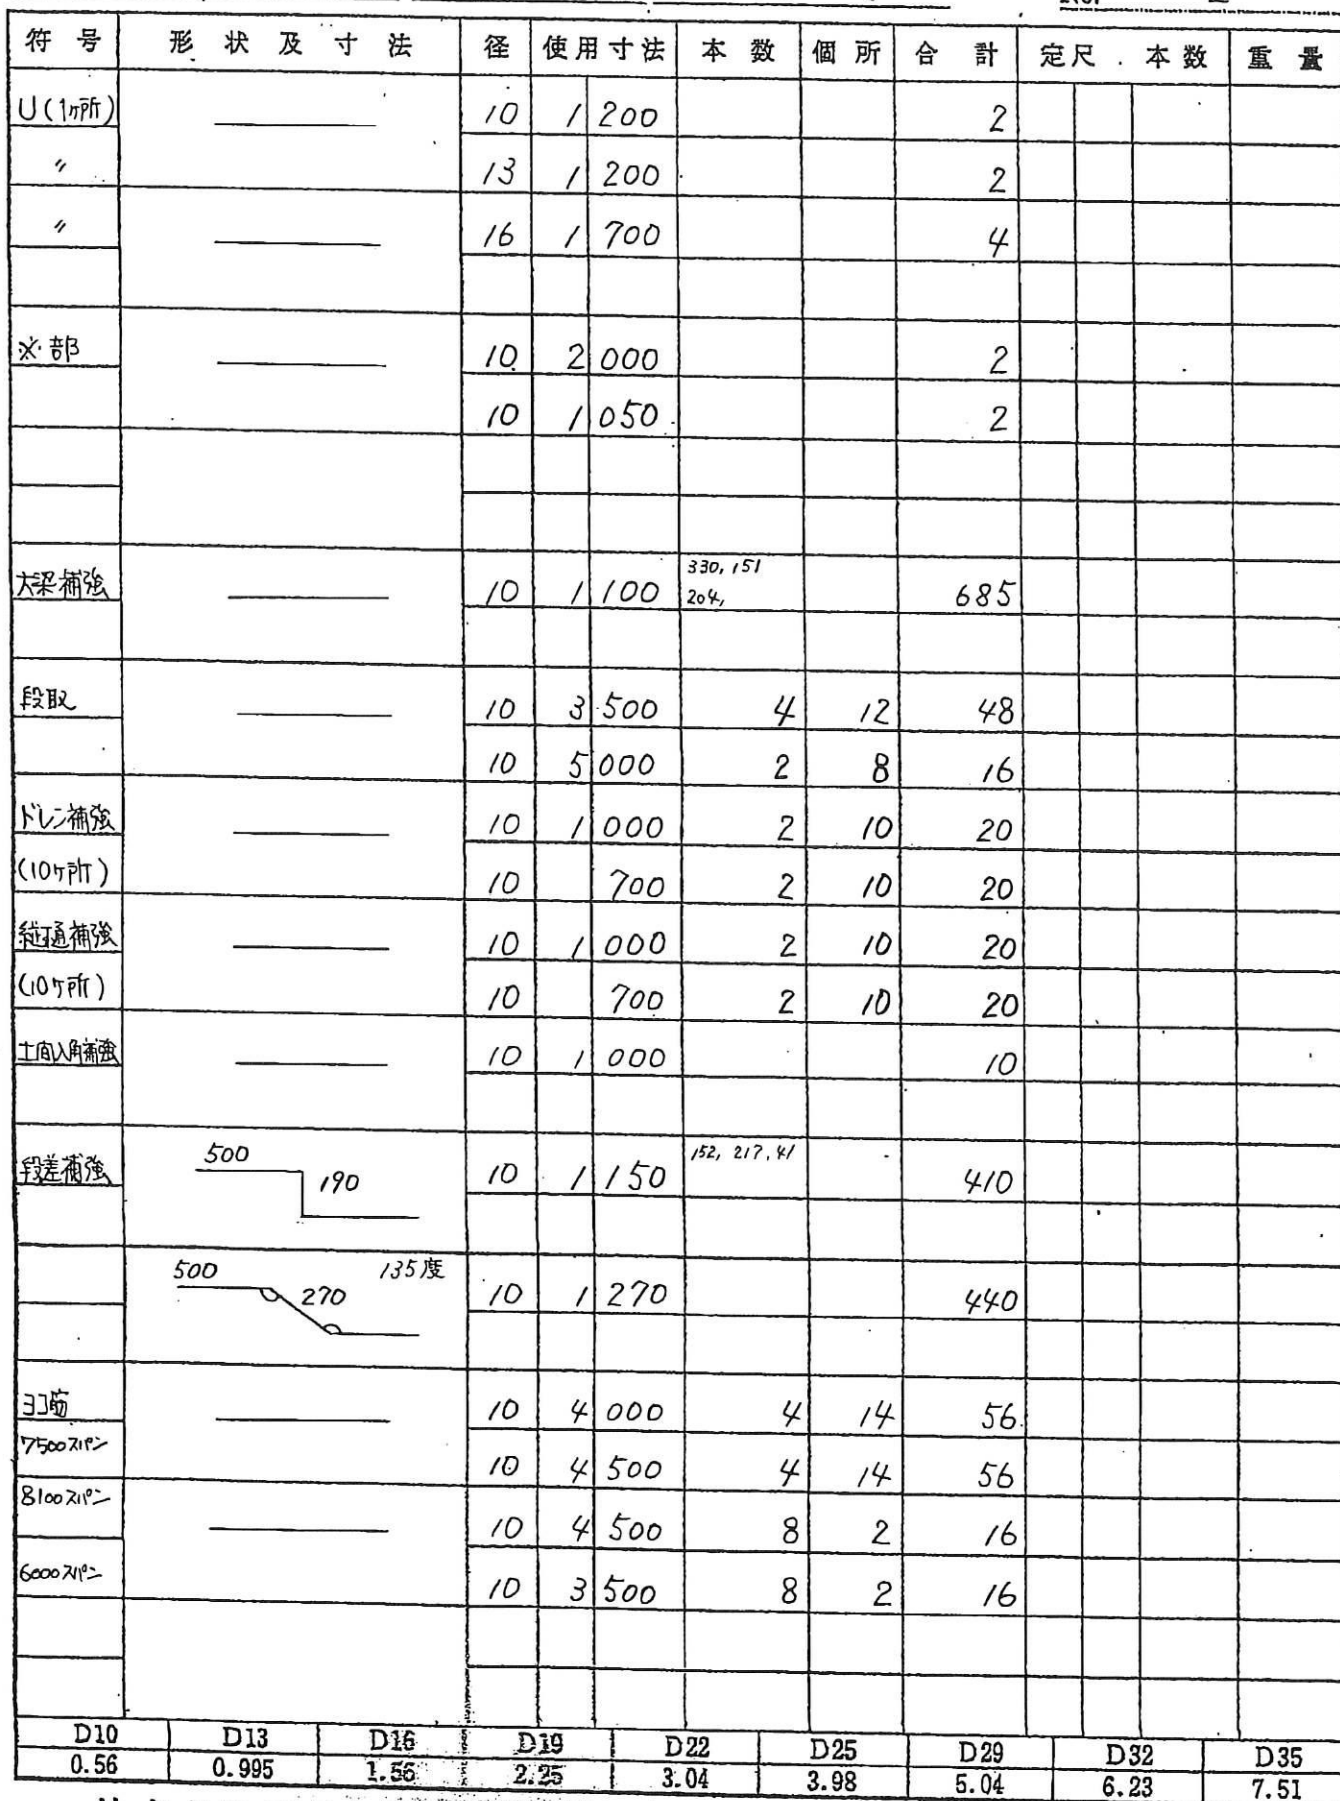 符号 形状及寸法 径 使用寸法 本数 個所 合計 定尺 . 本数 重量
U(1ヶ所) 10 1 200 2
〃 13 1 200 2
〃 16 1 700 4
※部 10 2 000 2
10 1 050 2
大梁補強 10 1 100 330, 151 204, 685
段取 10 3 500 4 12 48
10 5 000 2 8 16
ドレン補強 10 1 000 2 10 20
(10ヶ所) 10 700 2 10 20
縦通補強 10 1 000 2 10 20
(10ヶ所) 10 700 2 10 20
土間入角補強 10 1 000 10
段差補強 500 190 10 1 150 152, 217, 41 410
500 270 135度 10 1 270 440
ヨコ筋 10 4 000 4 14 56
7500スパン 10 4 500 4 14 56
8100スパン 10 4 500 8 2 16
6000スパン 10 3 500 8 2 16
D10 D13 D16 D19 D22 D25 D29 D32 D35
0.56 0.995 1.56 2.25 3.04 3.98 5.04 6.23 7.51